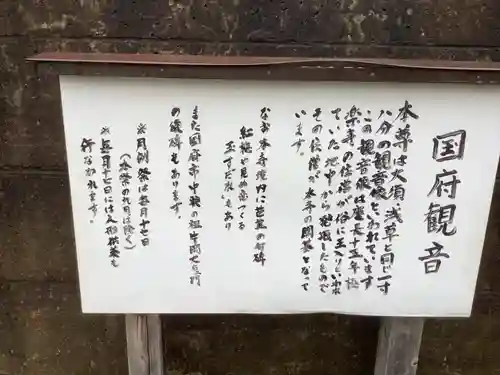 国府観音
本尊は大須、浅草と同じ一寸
八分の観音像といわれています
この観音像は慶長十五年極
楽寺の住僧が俗に玉入りといわれ
ていた池中から発掘したもので
その住僧が本寺の開基となって
います。
なお本寺境内に芭蕉の句碑
紅梅や見ぬ恋つくる
玉すだれ もあり
また国府市中興の祖
の儀碑もあります。
※月例祭は毎月十七日
(大祭の九月は除く)
※毎月十七日には人形供養も
行なわれます。